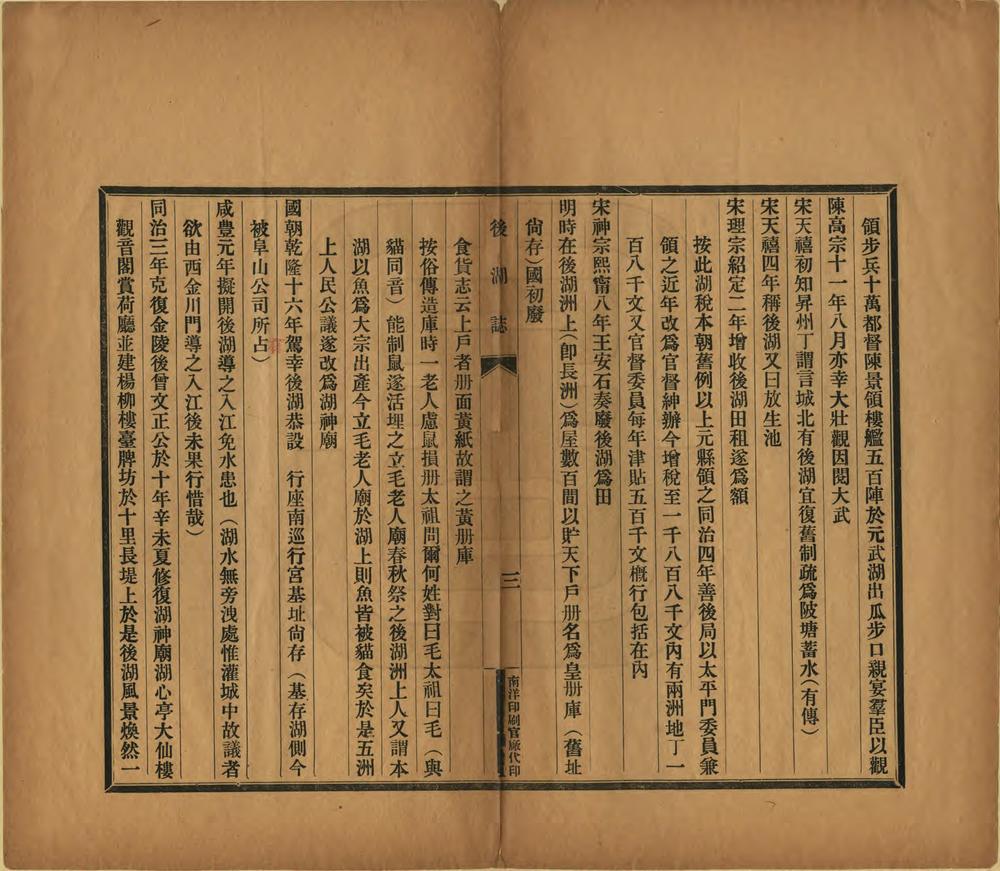 領步兵十萬都督陳景領樓艦五百陣於元武湖出瓜步口親宴羣臣以觀
陳高宗十一年八月亦幸大壯觀因閱大武
宋天禧初知昇州丁謂言城北有後湖宜復舊制疏爲陂塘蓄水（有傳）
宋天禧四年稱後湖又曰放生池
宋理宗紹定二年增收後湖田租遂爲額
按此湖稅本朝舊例以上元縣領之同治四年善後局以太平門委員兼
領之近年改爲官督紳辦今增稅至一千八百八千文內有兩洲地丁一
百八千文又官督委員每年津貼五百千文槪行包括在內
宋神宗熙甯八年王安石奏廢後湖爲田
明時在後湖洲上（卽長洲）爲屋數百間以貯天下戶册名爲皇册庫（舊址
尙存）國初廢
後湖誌
三
南洋印刷官廠代印
食貨志云上戶者册面黃紙故謂之黃册庫
按俗傳造庫時一老人慮鼠損册太祖問爾何姓對曰毛太祖曰毛（與
貓同音）能制鼠遂活埋之立毛老人廟春秋祭之後湖洲上人又謂本
湖以魚爲大宗出產今立毛老人廟於湖上則魚皆被貓食矣於是五洲
上人民公議遂改爲湖神廟
國朝乾隆十六年駕幸後湖恭設　行座南巡行宮基址尙存（基存湖側今
被阜山公司所占）
咸豊元年擬開後湖導之入江免水患也（湖水無旁洩處惟灌城中故議者
欲由西金川門導之入江後未果行惜哉）
同治三年克復金陵後曾文正公於十年辛未夏修復湖神廟湖心亭大仙樓
觀音閣賞荷廳並建楊柳樓臺牌坊於十里長堤上於是後湖風景煥然一